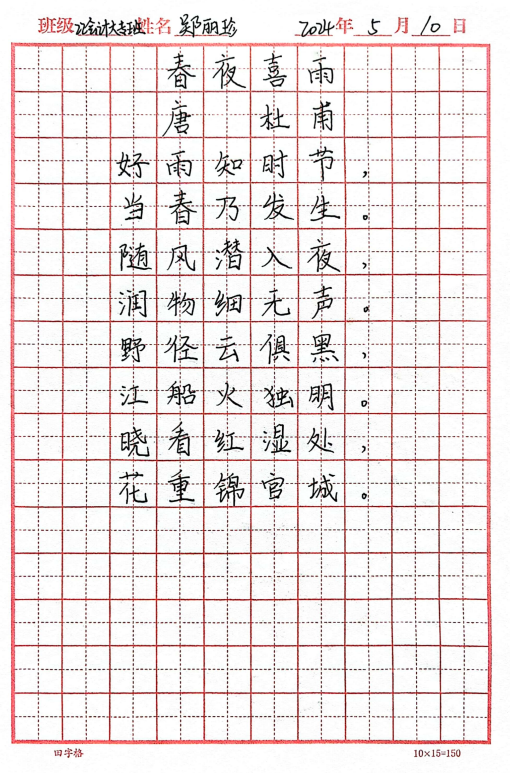 班级22会计大专班姓名 郑丽珍 2024年 5 月 10 日
春夜喜雨
唐 杜甫
好雨知时节，
当春乃发生。
随风潜入夜，
润物细无声。
野径云俱黑，
江船火独明。
晓看红湿处，
花重锦官城。
田字格 10×15=150